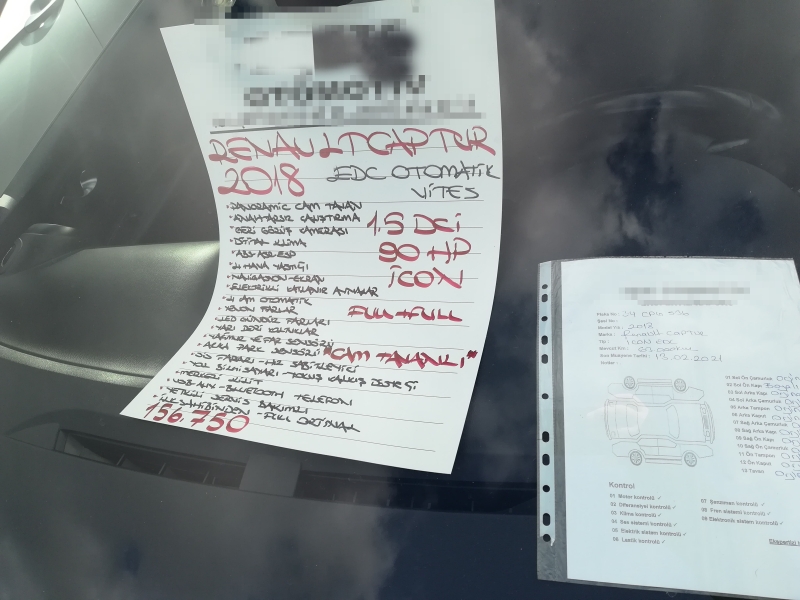 OTOMOTİV
RENAULT CAPTUR
2018 EDC OTOMATİK
VİTES
•PANORAMİC CAM TAVAN
•ANAHTARSIZ ÇALIŞTIRMA
•GERİ GÖRÜŞ KAMERASI
1.5 DCİ
•DİJİTAL KLİMA
•ABS-ASR-ESP
90 HP
•4 HAVA YASTIĞI
•NAVİGASYON-EKRAN
İCON
•ELEKTRİKLİ KATLANIR AYNALAR
•4 CAM OTOMATİK
•XENON FARLAR
FULL+FULL
•LED GÜNDÜZ FARLARI
•YARI DERİ KOLTUKLAR
•YAĞMUR VE FAR SENSÖRÜ
•ARKA PARK SENSÖRÜ "CAM TAVANLI"
•SİS FARLARI-HIZ SABİTLEYİCİ
•YOL BİLGİSAYARI-YOKUŞ KALKIŞ DESTEĞİ
•MERKEZİ KİLİT
•USB-AUX-BLUETOOTH TELEFON
•YETKİLİ SERVİS BAKIMLI
•İLK SAHİBİNDEN - FULL ORJİNAL
156.750
Plaka No :
Şasi No :
Model Yılı : 2018
Marka : Renault CAPTUR
Tip : İCON EDC
Son Muayene Tarihi : 19.02.2021
Notlar :
01 Sol Ön Çamurluk
02 Sol Ön Kapı
03 Sol Arka Kapı
04 Sol Arka Çamurluk
05 Arka Tampon
06 Arka Kaput
07 Sağ Arka Çamurluk
08 Sağ Arka Kapı
09 Sağ Ön Kapı
10 Sağ Ön Çamurluk
11 Ön Tampon
12 Ön Kaput
13 Tavan
Kontrol
01 Motor kontrolü ✓
02 Diferansiyel kontrolü ✓
03 Klima kontrolü ✓
04 Ses sistemi kontrolü ✓
05 Elektrik sistem kontrolü ✓
06 Lastik kontrolü ✓
07 Şanzıman kontrolü ✓
08 Fren sistemi kontrolü ✓
09 Elektronik sistem kontrolü ✓